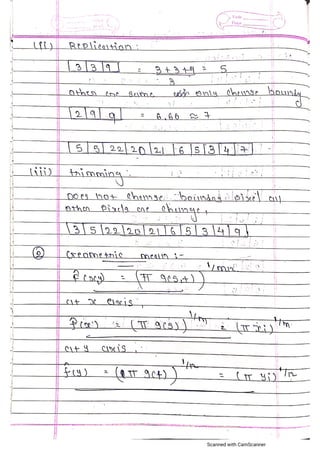 (ii) Replication :
3 3 9 = 3+3+9 = 5
3
other are same only change boundy
2 9 9 = 6.60 ≈ 7
5 5 22 20 21 6 5 3 4 7
(iii) trimming :
Does not change boundary pixel all
other pixels are change,
3 5 22 20 21 6 5 3 4 9
② Geometric mean :-
f̂(x,y) = (π g(s,t))^1/mn
at x axis,
f̂(x) = (π g(s))^1/m = (π xi)^1/m
at y axis,
f̂(y) = (π g(t))^1/n = (π yi)^1/n
Scanned with CamScanner